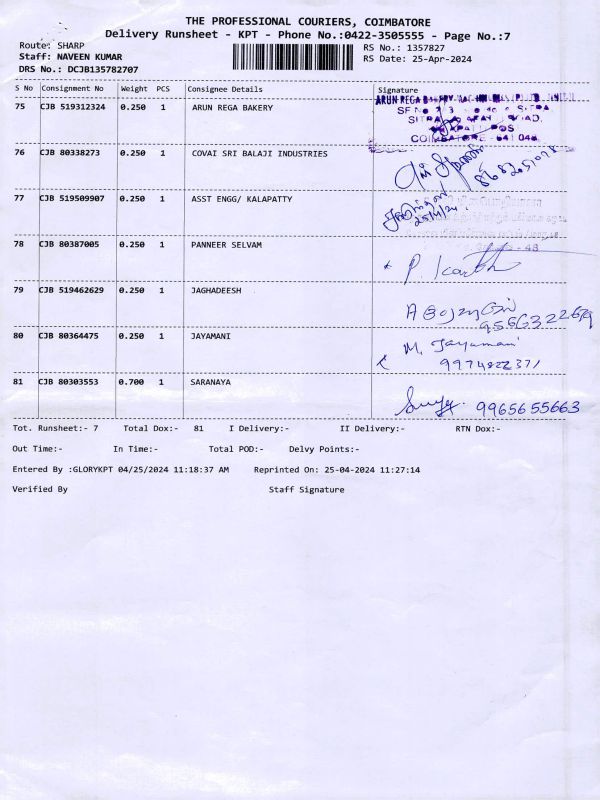 THE PROFESSIONAL COURIERS, COIMBATORE
Delivery Runsheet - KPT - Phone No.:0422-3505555 - Page No.:7
Route: SHARP
Staff: NAVEEN KUMAR
DRS No.: DCJB135782707
RS No.: 1357827
RS Date: 25-Apr-2024
S No Consignment No Weight PCS Consignee Details Signature
75 CJB 519312324 0.250 1 ARUN REGA BAKERY
ARUN REGA
COIMBATORE
76 CJB 80338273 0.250 1 COVAI SRI BALAJI INDUSTRIES
77 CJB 519509907 0.250 1 ASST ENGG/ KALAPATTY
25/4/24
78 CJB 80387005 0.250 1 PANNEER SELVAM
79 CJB 519462629 0.250 1 JAGHADEESH
80 CJB 80364475 0.250 1 JAYAMANI M. Jayamani
81 CJB 80303553 0.700 1 SARANAYA 9965655663
Tot. Runsheet:- 7 Total Dox:- 81 I Delivery:- II Delivery:- RTN Dox:-
Out Time:- In Time:- Total POD:- Delvy Points:-
Entered By :GLORYKPT 04/25/2024 11:18:37 AM Reprinted On: 25-04-2024 11:27:14
Verified By Staff Signature